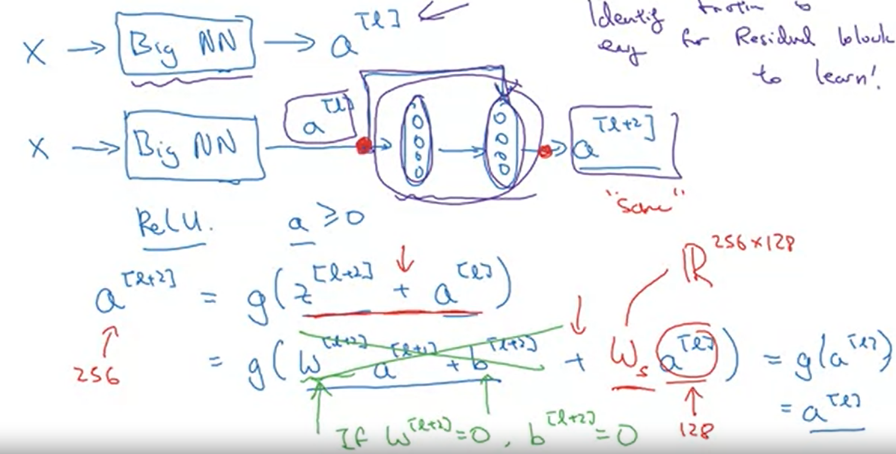 X → Big NN → a^[l]
Identity function is
easy for Residual block
to learn!
X → Big NN → a^[l] → → a^[l+2]
"same"
ReLU. a ≥ 0
ℝ^256×128
a^[l+2] = g(z^[l+2] + a^[l])
256
= g(W^[l+2] a^[l+1] + b^[l+2] + W_s a^[l]) = g(a^[l])
128
= a^[l]
If W^[l+2] = 0, b^[l+2] = 0